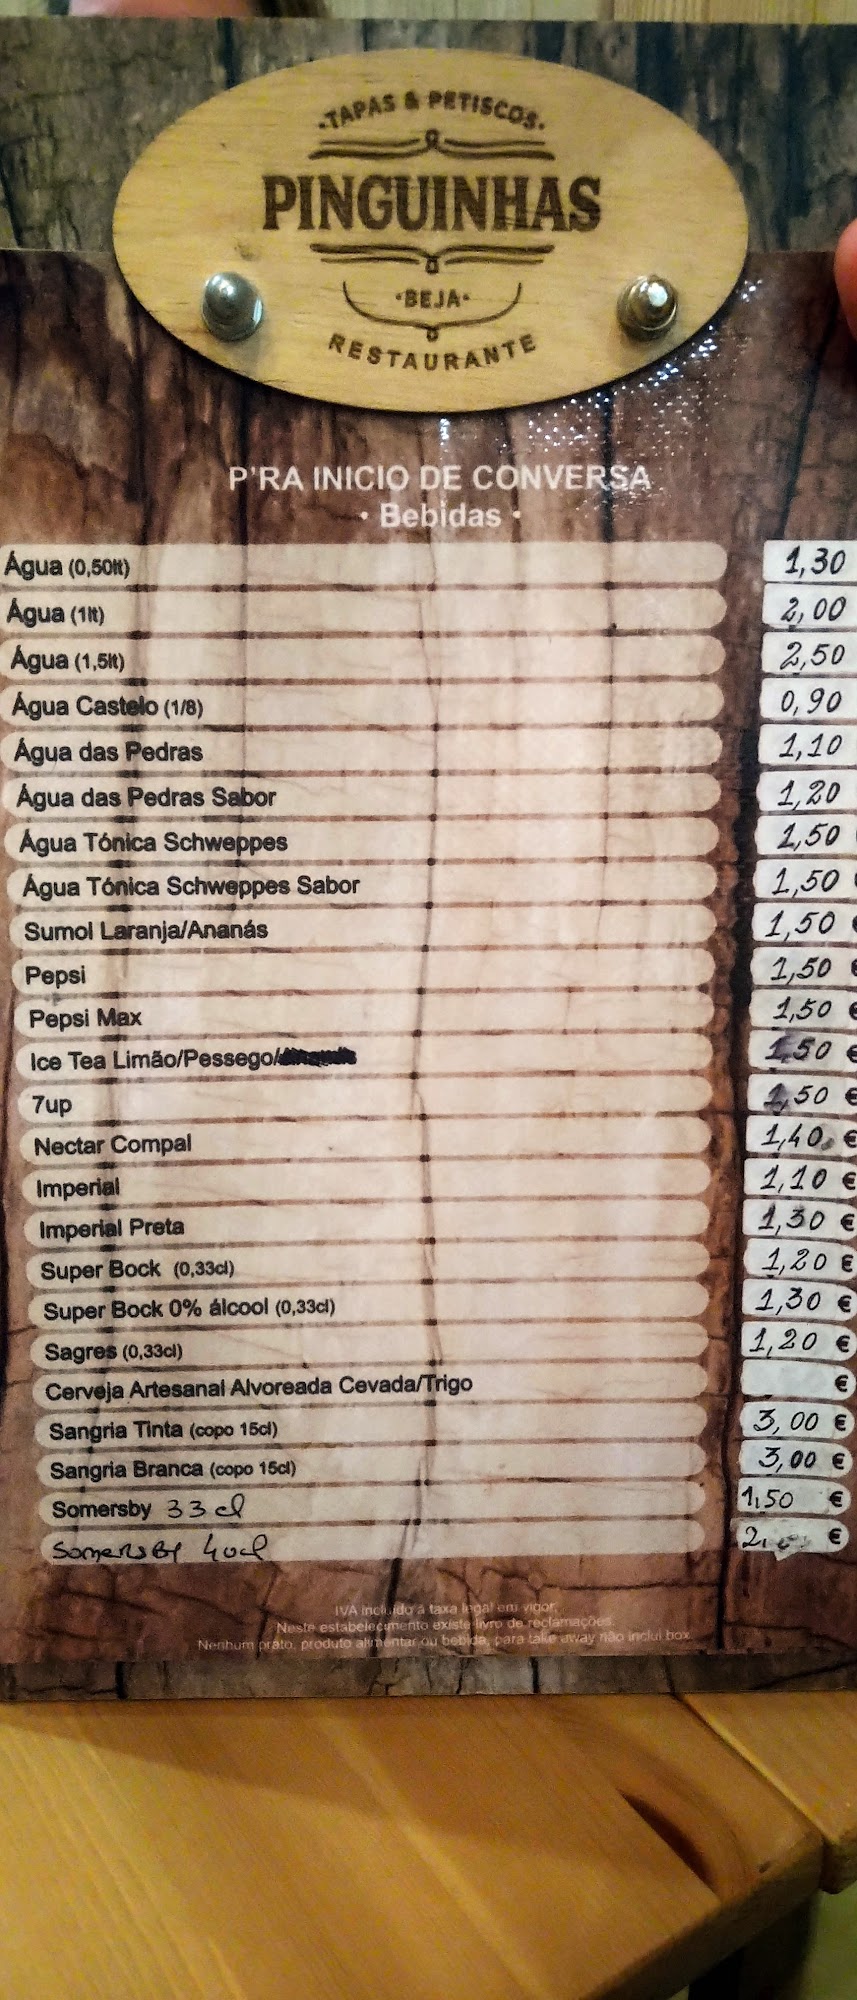 ·TAPAS & PETISCOS·
PINGUINHAS
·BEJA·
RESTAURANTE
P'RA INICIO DE CONVERSA
· Bebidas ·
Água (0,50lt) 1,30
Água (1lt) 2,00
Água (1,5lt) 2,50
Água Castelo (1/8) 0,90
Água das Pedras 1,10
Água das Pedras Sabor 1,20
Água Tónica Schweppes 1,50
Água Tónica Schweppes Sabor 1,50 €
Sumol Laranja/Ananás 1,50 €
Pepsi 1,50 €
Pepsi Max 1,50 €
Ice Tea Limão/Pessego/ 1,50 €
7up 1,50 €
Nectar Compal 1,40 €
Imperial 1,10 €
Imperial Preta 1,30 €
Super Bock (0,33cl) 1,20 €
Super Bock 0% álcool (0,33cl) 1,30 €
Sagres (0,33cl) 1,20 €
Cerveja Artesanal Alvoreada Cevada/Trigo €
Sangria Tinta (copo 15cl) 3,00 €
Sangria Branca (copo 15cl) 3,00 €
Somersby 33 cl 1,50 €
SomersBy 40cl €
IVA incluído à taxa legal em vigor.
Neste estabelecimento existe livro de reclamações.
Nenhum prato, produto alimentar ou bebida, para take away não inclui box